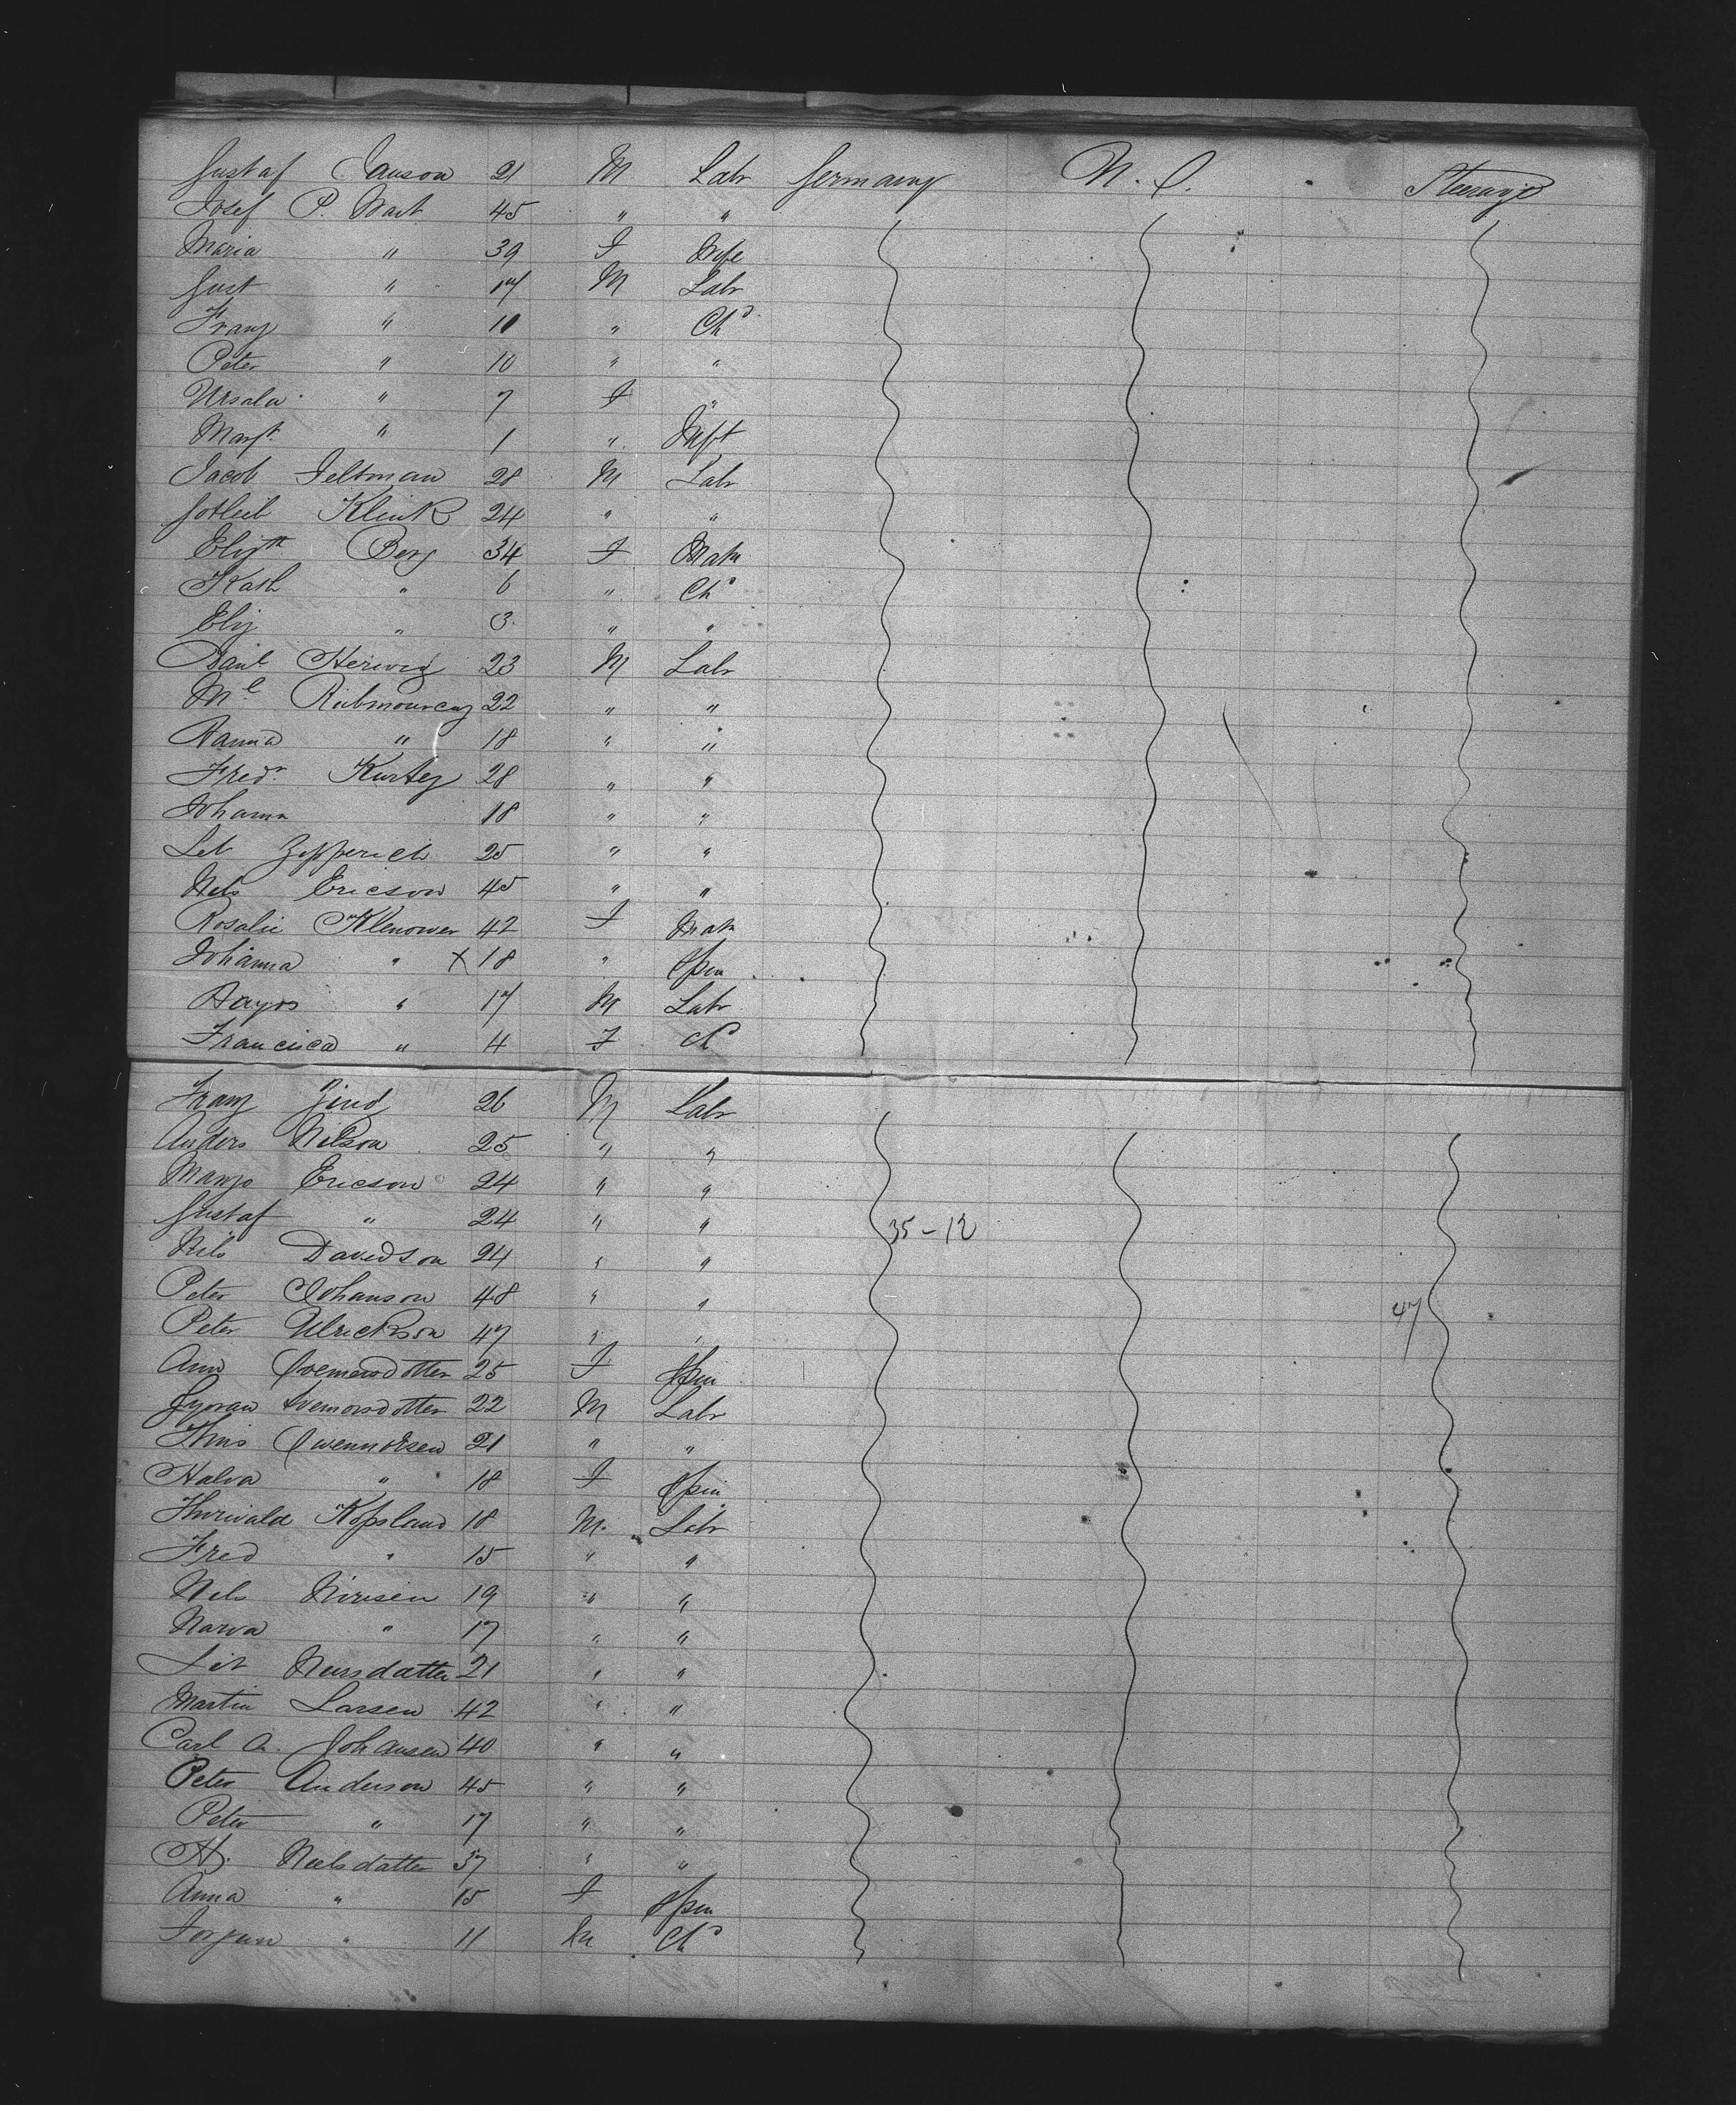 Gustaf Janson 21 M Labr Germany N. S. Steerage
Josef P. Wart 45 " "
Maria " 39 F Wife
Gust " 17 M Labr
Franz " 11 " Chd
Peter " 10 " "
Ursala " 7 F "
Margt " 1 " Inft
Jacob Feltman 28 M Labr
Gotleib Klink 24 " "
Elizth Berg 34 F Matn
Kath " 6 " Chd
Eliz " 3 " "
Danl Herwig 23 M Labr
Ml 22 " "
Hanna " 18 " "
Fredr Kurtez 28 " "
Johann 18 " "
Zepperich 25 " "
Nels Ericson 45 " "
Rosalie Klenower 42 F Matn
Johanna " X 18 " Spin
" 17 M Labr
Francisca " 4 F Chd
Franz Zind 26 M Labr
Anders Nelson 25 " "
Ericson 24 " "
Gustaf " 24 " " 35-12
Nels Davidson 24 " "
Peter Johanson 48 " " 47
Peter Ulrickson 47 " "
Ann 25 F Spin
22 M Labr
21 " "
Halva " 18 F Spin
Thorwald Kopsland 18 M. Labr
Fred " 15 " "
Nels 19 " "
Narva " 17 " "
21 " "
Martin Larsen 42 " "
Carl A. Johansen 40 " "
Peter Anderson 45 " "
Peter " 17 " "
H. Neelsdatter 37 " "
Anna " 15 F Spin
" 11 M Chd